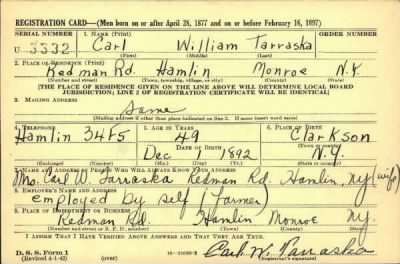 REGISTRATION CARD—(Men born on or after April 28, 1877 and on or before February 16, 1897)
SERIAL NUMBER 1. NAME (Print) ORDER NUMBER
U 3332 Carl William Tarraska
(First) (Middle) (Last)
2. PLACE OF RESIDENCE (Print)
Redman Rd. Hamlin Monroe N.Y.
(Number and street) (Town, township, village, or city) (County) (State)
[THE PLACE OF RESIDENCE GIVEN ON THE LINE ABOVE WILL DETERMINE LOCAL BOARD
JURISDICTION; LINE 2 OF REGISTRATION CERTIFICATE WILL BE IDENTICAL]
3. MAILING ADDRESS
Same
[Mailing address if other than place indicated on line 2. If same insert word same]
4. TELEPHONE 5. AGE IN YEARS 6. PLACE OF BIRTH
Hamlin 34F5 49 Clarkson
DATE OF BIRTH (Town or county)
Dec 1 1892 N.Y.
(Exchange) (Number) (Mo.) (Day) (Yr.) (State or country)
7. NAME AND ADDRESS OF PERSON WHO WILL ALWAYS KNOW YOUR ADDRESS
Mrs. Carl W. Tarraska Redman Rd. Hamlin, NY (wife)
8. EMPLOYER'S NAME AND ADDRESS
employed by self (farmer)
9. PLACE OF EMPLOYMENT OR BUSINESS
Redman Rd. Hamlin Monroe NY.
(Number and street or R. F. D. number) (Town) (County) (State)
I AFFIRM THAT I HAVE VERIFIED ABOVE ANSWERS AND THAT THEY ARE TRUE.
D. S. S. Form 1
(Revised 4-1-42) (over) Carl W. Tarraska
(Registrant's signature)